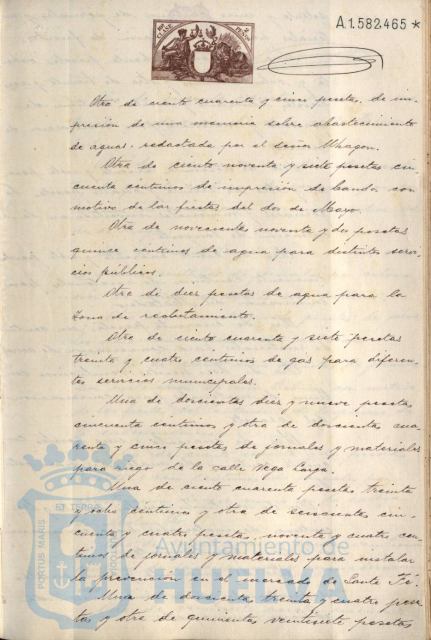 A.1.582.465 *
Otra de ciento cuarenta y cinco pesetas, de im-
presión de una memoria sobre abastecimiento
de aguas, redactada por el señor
Otra de ciento noventa y siete pesetas cin-
cuenta centimos de impresión de bandos con
motivo de las fiestas del dos de Mayo.
Otra de novecientas noventa y dos pesetas
quince centimos de agua para distintos servi-
cios públicos.
Otra de diez pesetas de agua para la
Zona de reclutamiento.
Otra de ciento cuarenta y siete pesetas
treinta y cuatro centimos de gas para diferen-
tes servicios municipales.
Una de doscientas diez y nueve pesetas
cincuenta centimos y otra de doscientas cua-
renta y cinco pesetas de jornales y materiales
para riego de la calle Vega Larga.
Una de ciento cuarenta pesetas treinta
y centimos y otra de seiscientas cin-
cuenta y cuatro pesetas, noventa y cuatro cen-
timos de jornales y materiales para instalar
la prevencion en el mercado de Santa Fé.
Una de doscientas treinta y cuatro pese-
tas y otra de quinientas veintisiete pesetas
Ayuntamiento de
HUELVA
PORTUS MARIS
ET TERRAE